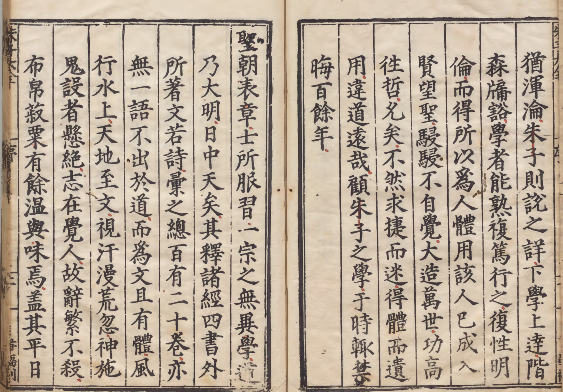 猶渾淪朱子則說之詳下學上達階
森牖谿學者能熟複篤行之復性明
倫而得所以為人體用該人已成入
賢望聖駸駸不自覺大造萬世功高
徃哲允矣不然求捷而迷得體而遺
用違道遠哉顧朱子之學于時輙禁
晦百餘年
聖朝表章士所服習一宗之無異學
乃大明日中天矣其釋諸經四書外
所著文若詩彙之總百有二十卷亦
無一語不出於道而為文且有體風
行水上天地至文視汗漫荒忽神施
鬼設者懸絕志在覺人故辭繁不殺
布帛菽粟有餘溫與味焉蓋其平日